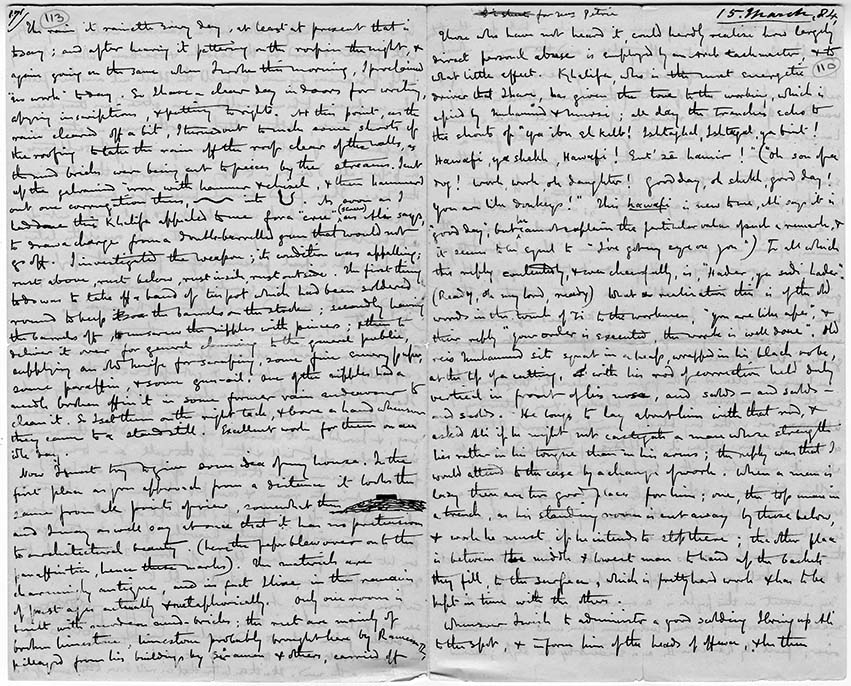 113
The rain it raineth every day, at least at present that is
to say; and after hearing it pattering on the roof in the night, &
again going on the same when I woke this morning, I proclaimed
"no work" to day. So I have a clear day indoors for writing,
copying inscriptions, & putting to rights. At this point, as the
rain cleared off a bit, I turned out to make some shoots of
the roofing to take the rain off the roof clear of the walls, as
the mud bricks were being cut to pieces by the streams. I cut
up the galvanized iron with hammer & chisel, & then hammered
out one corrugation thus, it As soon as I
had done this Khalifa appealed to me for a
to draw a charge from a double-barrelled gun that would not
go off. I investigated the weapon; its condition was appalling;
rust above, rust below, rust inside, rust outside. The first thing
to do was to take off a band of tin pot which had been soldered
round to keep the barrels on the stock; secondly having
the barrels off, to unscrew the nipples with pincers; & then to
deliver it over for general cleaning to the general public,
supplying an old knife for scraping, some fine emery paper,
some paraffin, & some gun-oil. One of the nipples had a
needle broken off in it in some former vain endeavour to
clean it. So I set them on the right tack, & gave a hand whenever
they came to a standstill. Excellent work for them on an
idle day.
Now I must try & give some idea of my house. In the
first place as you approach from a distance it looks the
same from all points of view, somewhat thus
and I may as well say at once that it has no pretension
to architectural beauty. (here the paper blew over on to the
paraffin tin, hence these marks). The materials are
charmingly antique, and in fact I live in the remains
of past ages actually & metaphorically. Only one room is
built with modern mud-bricks; the rest are mainly of
broken limestone, limestone probably brought here by Ramessu II
pillaged from his buildings by Siamen & others, carried off
for Miss Petrie
15. March. 84.
110
Those who have not heard it could hardly realise how largely
direct personal abuse is employed by an Arab taskmaster, & to
what little effect. Khalifa, who is the most energetic
driver that I have, has given the tone to the working, which is
copied by Muhamed & Mursi; all day the trenches echo to
the shouts of "ya ibn el kelb! Ishtaghal, Ishtagal, ya bint!
Hawafi, ya shekh, Hawafi! Ent zé hamir!" ("Oh son of a
dog! work, work oh daughter! good day, oh shekh, good day!
You are like donkeys!" This hawafi is new to me, Ali says it is
good day; but he cannot explain the particular value of such a remark, &
it seems to be equal to "I've got my eye on you") To all which
the reply constantly, & even cheerfully, is, "Hader, ya sidi hader"
(Ready, oh my lord, ready) What a realisation this is of the old
words in the tomb of Ti to the workmen, "you are like apes", &
their reply "your order is executed, the work is well done". Old
reis Muhamed sits squat in a heap, wrapped in his black robe,
at the top of a cutting, with his rod of correction held duly
vertical in front of his nose, and scolds – and scolds –
and scolds. He longs to lay about him with that rod, &
asked Ali if he might not castigate a man whose strength
lies rather in his tongue than in his arms; the reply was that I
would attend to the case by a change of work. When a man is
lazy there are two good places for him; one, the top man in
a trench, as his standing room is cut away by those below,
& work he must if he intends to stop there; the other place
is between the middle & lowest man to hand up the baskets
they fill, to the surface, which is pretty hard work & has to be
kept in time with the others.
Whenever I wish to administer a good scolding I bring up Ali
to the spot, & inform him of the heads of offence, & he then